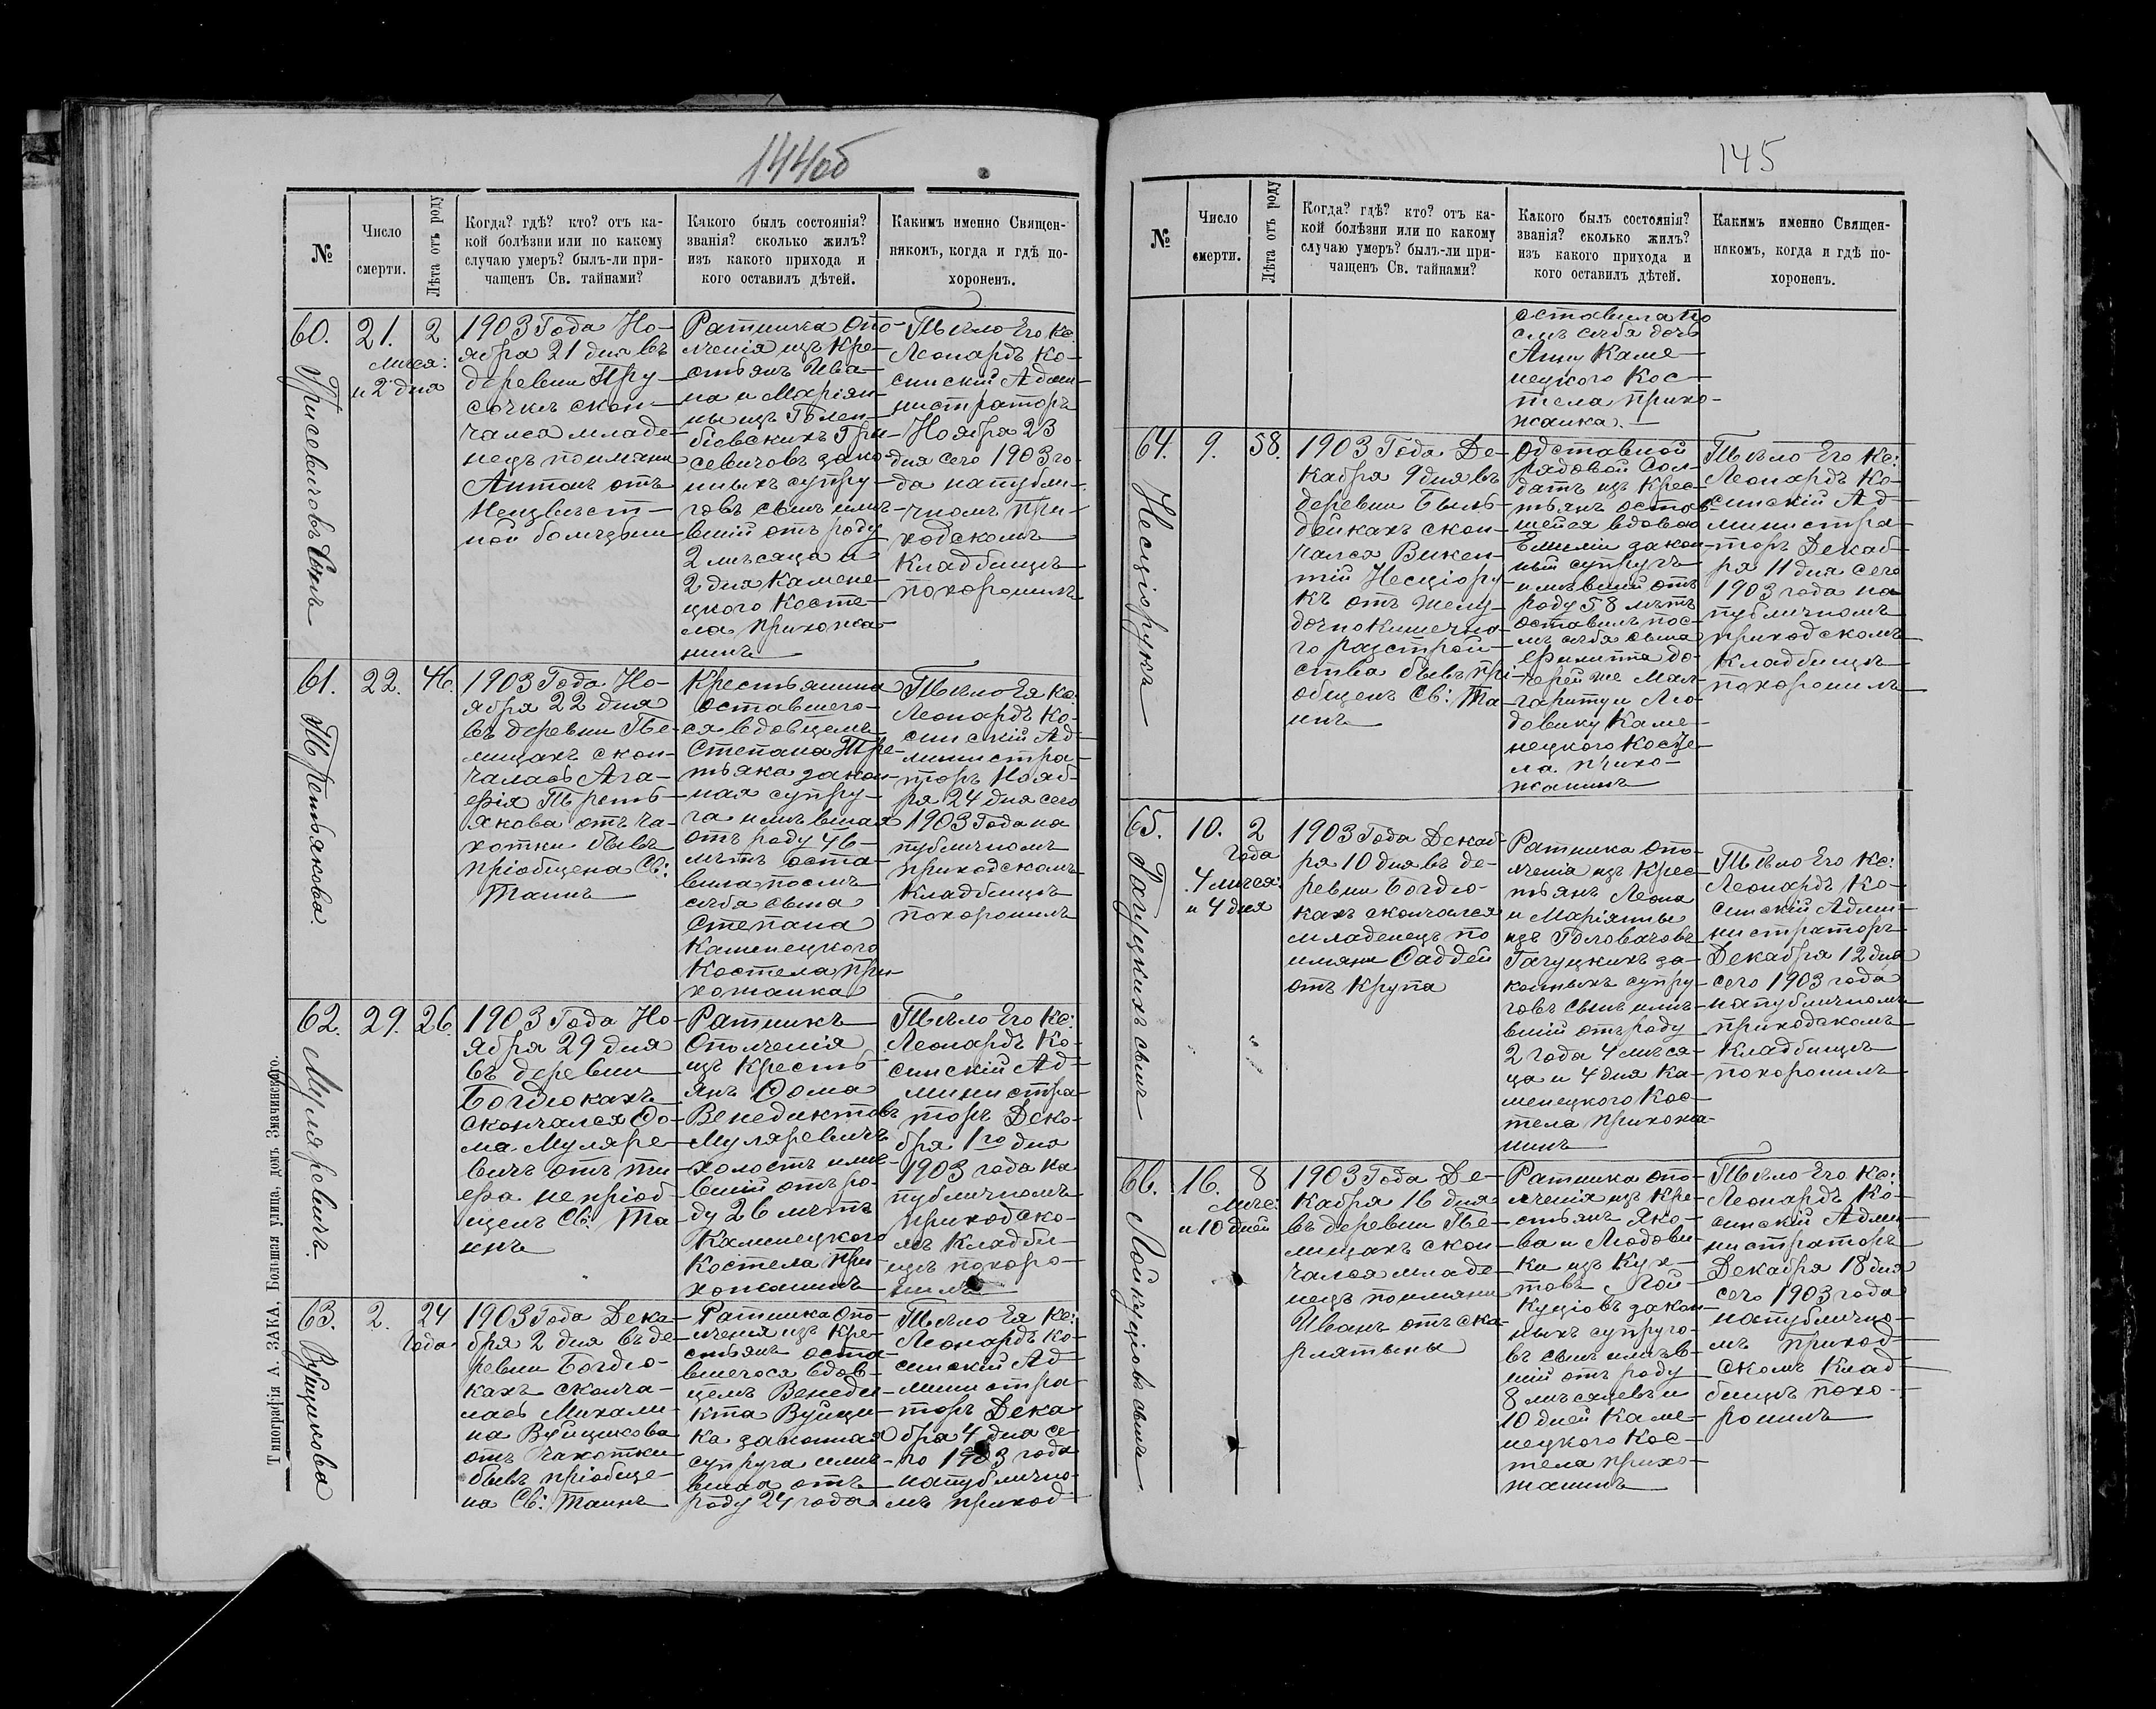 144об
№
Число
смерти.
Лѣта отъ роду
Когда? гдѣ? кто? отъ ка-
кой болѣзни или по какому
случаю умеръ? былъ-ли при-
чащенъ Св. тайнами?
Какого былъ состоянія?
званія? сколько жилъ?
изъ какого прихода и
кого оставилъ дѣтей.
Какимъ именно Священ-
никомъ, когда и гдѣ по-
хороненъ.
60.
Грисевичовъ Сынъ
21.
2
мѣся:
и 2 дня
1903 Года Но-
ября 21 дня въ
деревни Пру-
сочкъ скон-
чался младе-
нецъ поимяни
Антонъ отъ
Неизвѣст-
ной болѣзьни
Ратника Опо-
лченія изъ Кре-
стьянъ Ива-
на и Маріян-
ны изъ Голем-
біевскихъ Гри-
севичовъ зако-
нныхъ супру-
говъ сынъ имѣ-
вшій отъ роду
2 мѣсяца и
2 дня Камене-
цкого Косте-
ла прихожа-
нинъ
Тѣло Его Кс:
Леонардъ Ко-
синскій Адми-
нистраторъ
Ноября 23
дня сего 1903 го-
да на публи-
чномъ при-
ходскомъ
Кладбищѣ
похоронилъ
61.
Третьякова.
22.
46.
1903 Года Но-
ября 22 дня
въ деревни Пе-
лищахъ скон-
чалась Ага-
фія Треть-
якова отъ ча-
хотки бывъ
пріобщена Св:
Таинъ
Крестьянина
оставшего-
ся вдовцемъ
Степана Тре-
тьяка закон-
ная супру-
га имѣвшая
отъ роду 46
лѣтъ оста-
вила послѣ
себя сына
Степана
Каменецкого
Костела при-
хожанка
Тѣло Ея Кс:
Леонардъ Ко-
синскій Ад-
министра-
торъ Нояб-
ря 24 дня сего
1903 Года на
публичномъ
приходскомъ
Кладбищѣ
похоронилъ
62.
Муляревичъ.
29.
26.
1903 Года Но-
ября 29 дня
въ деревни
Богдюкахъ
скончался Ѳо-
ма Муляре-
вичъ отъ ти-
фа не пріоб-
щенъ Св: Та-
инъ
Ратникъ
Ополченія
изъ Кресть-
янъ Ѳома
Венедиктовъ
Муляревичъ
холостъ имѣ-
вшій отъ ро-
ду 26 лѣтъ
Каменецкого
Костела при-
хожанинъ
Тѣло Его Кс:
Леонардъ Ко-
синскій Ад-
министра-
торъ Дека-
бря 1го дня
1903 года на
публичномъ
приходско-
мъ Кладби-
щѣ похоро-
нилъ
63.
Вуйцикова
2.
24
Года
1903 Года Дека-
бря 2 дня въ де-
ревни Богдю-
кахъ сконча-
лась Михали-
на Вуйцикова
отъ чахотки
бывъ пріобще-
на Св: Таинъ
Ратника Опо-
лченія изъ Кре-
стьянъ оста-
вшегося вдов-
цемъ Венеди-
кта Вуйци-
ка законная
супруга имѣ-
вшая отъ
роду 24 года
Тѣло Ея Кс:
Леонардъ Ко-
синскій Ад-
министра-
торъ Дека
бря 4 дня се-
го 1903 года
на публично-
мъ приход-
Типографія А. ЗАКА, Большая улица, домъ Змачинского.
145
№
Число
смерти.
Лѣта отъ роду
Когда? гдѣ? кто? отъ ка-
кой болѣзни или по какому
случаю умеръ? былъ-ли при-
чащенъ Св. тайнами?
Какого былъ состоянія?
званія? сколько жилъ?
изъ какого прихода и
кого оставилъ дѣтей.
Какимъ именно Священ-
никомъ, когда и гдѣ по-
хороненъ.
оставила по
слѣ себя дочь
Анну Каме-
нецкого Кос-
тела прихо-
жанка.
64.
Несціорукъ
9.
58.
1903 Года Де-
кабря 9 дня въ
деревни Быль-
дейкахъ скон-
чался Викен-
тій Несціору-
къ отъ желу-
дочнокишечна-
го разстрой-
ства бывъ прі-
общенъ Св: Та-
инъ
Одставной
рядовой Сол-
датъ изъ Крес-
тьянъ остав-
шейся вдовою
Емиліи закон-
ный супругъ
имѣвшій отъ
роду 58 лѣтъ
оставилъ пос-
лѣ себя сына
Филиппа до-
черей же Мал-
гариту и Лю-
довику Каме-
нецкого Косте-
ла прихо-
жанинъ
Тѣло Его Кс:
Леонардъ Ко-
синскій Ад-
министра-
торъ Декаб-
ря 11 дня сего
1903 года на
публичномъ
приходскомъ
Кладбищѣ
похоронилъ
65.
Гагуцкихъ сынъ
10.
2
года
4 мѣся:
и 4 дня
1903 Года Декаб-
ря 10 дня въ де-
ревни Богдю-
кахъ скончался
младенецъ по
имяни Ѳаддей
отъ Крупа
Ратника Опо-
лченія изъ Крес-
тьянъ Леона
и Маріянны
изъ Головачовъ
Гагуцкихъ за-
конныхъ супру-
говъ сынъ имѣ-
вшій отъ роду
2 года 4 мѣся-
ца и 4 дня Ка-
менецкого Кос-
тела прихожа-
нинъ
Тѣло Его Кс:
Леонардъ Ко-
синскій Адми-
нистраторъ
Декабря 12 дня
сего 1903 года
на публичномъ
приходскомъ
Кладбищѣ
похоронилъ
66.
Лойкуціовъ сынъ
16.
8
мѣсе:
и 10 дней
1903 Года Де-
кабря 16 дня
въ деревни Пе-
лищахъ скон-
чался младе-
нецъ поимяни
Иванъ отъ ска-
рлятыны
Ратника Опо-
лченія изъ Кре-
стьянъ Яко-
ва и Людови-
ки изъ Кух-
товъ Лой-
куціовъ закон-
ныхъ супруго-
въ сынъ имѣв-
шій отъ роду
8 мѣсяцевъ и
10 дней Каме-
нецкого Кос-
тела прихо-
жанинъ
Тѣло Его Кс:
Леонардъ Ко-
синскій Адми-
нистраторъ
Декабря 18 дня
сего 1903 года
на публично-
мъ приход-
скомъ Клад-
бищѣ похо-
ронилъ